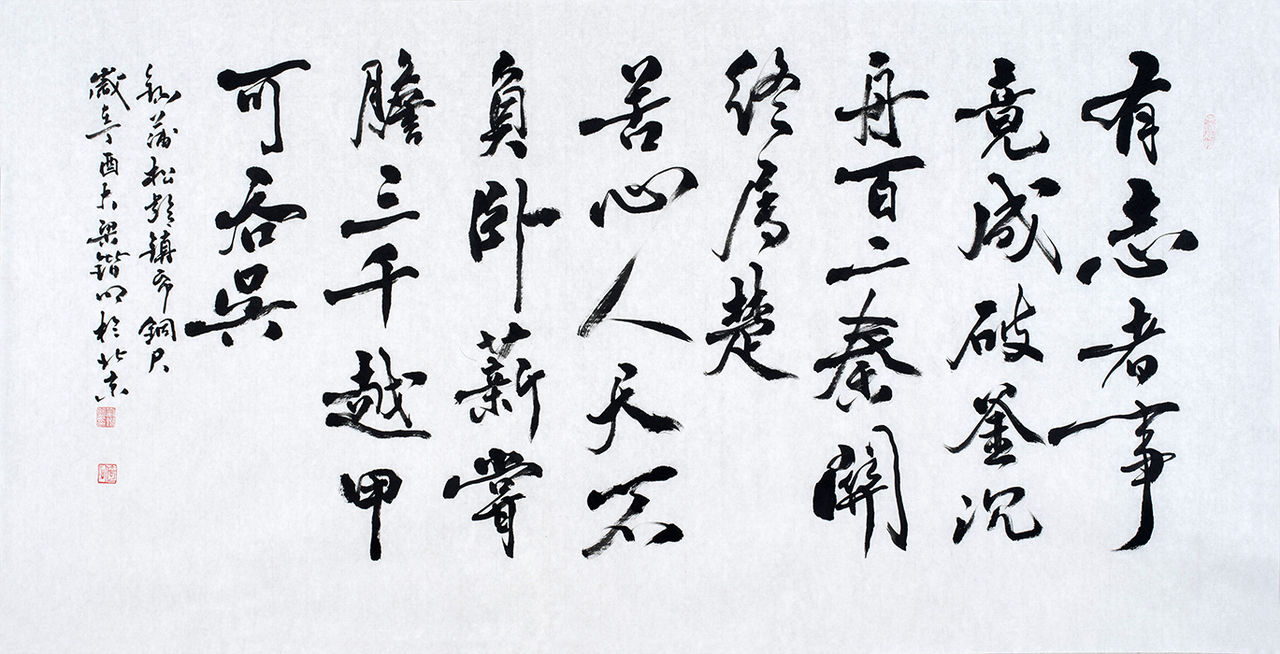 有志者事
竟成破釜沉
舟百二秦關
終属楚
苦心人天不
負卧薪嘗
膽三千越甲
可吞吳
錄蒲松齡鎮帋銅尺
歲辛酉大梁鍇於北京